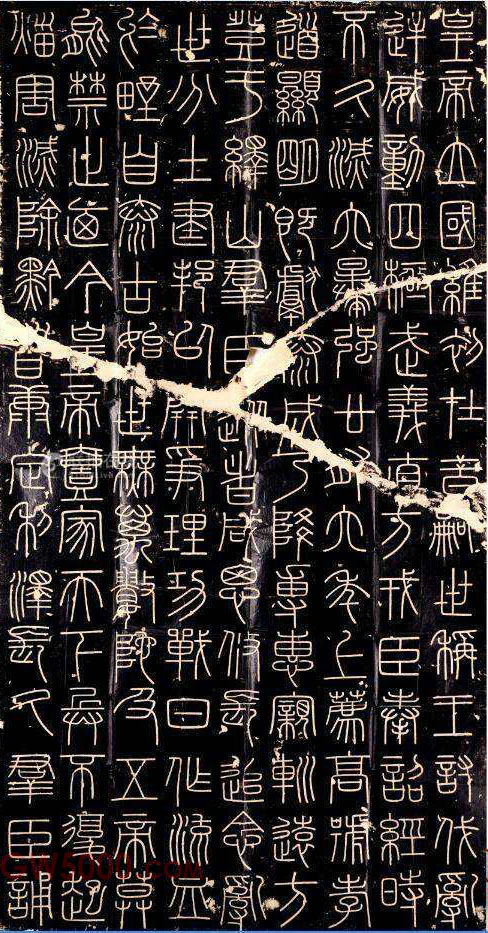 皇帝立國維初在昔嗣世稱王討伐亂
逆威動四極武義直方戎臣奉詔經時
不久滅六暴強廿有六年上薦高號孝
道顯明既獻泰成乃降專惠親巡遠方
登于繹山群臣從者咸思攸長追念亂
世分土建邦以開爭理功戰日作流血
於野自泰古始世無萬數陀及五帝莫
能禁止廼今皇帝壹家天下兵不復起
災害滅除黔首康定利澤長久群臣誦
GW5000.COM